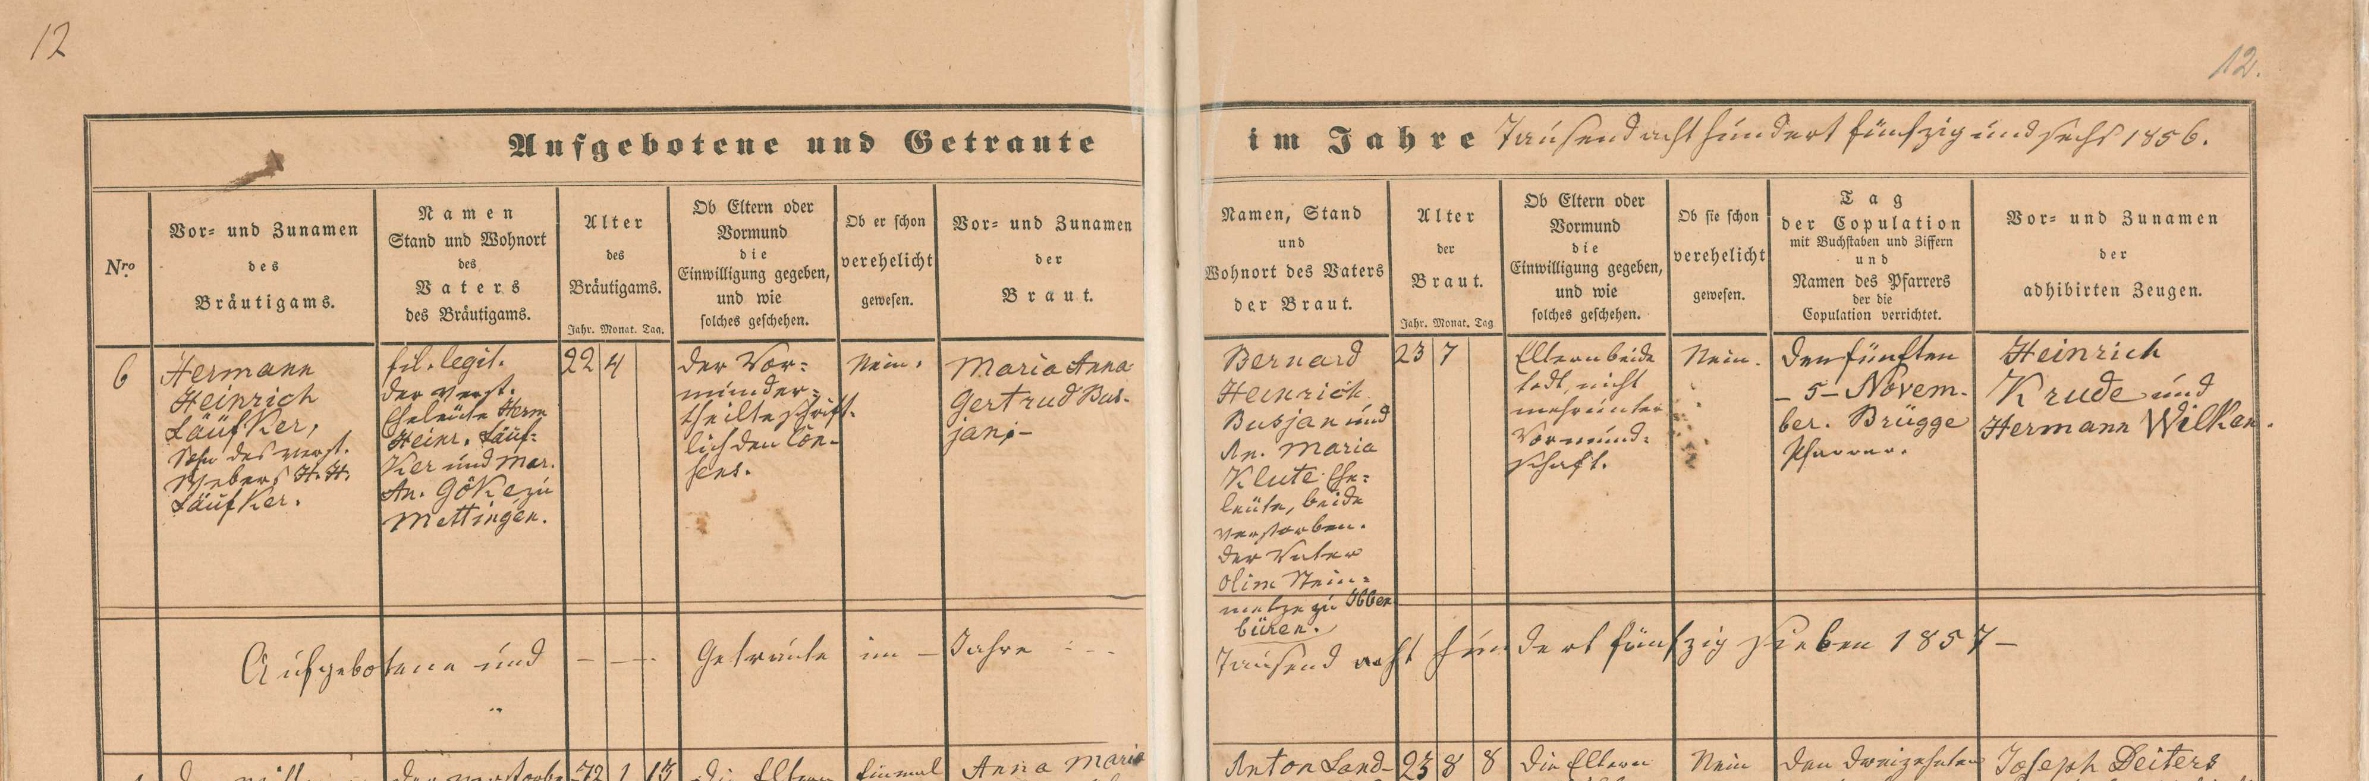 12
12.
Aufgebotene und Getraute im Jahre Tausend acht hundert fünfzig und sechs 1856.
Nro
Vor= und Zunamen
des
Bräutigams.
Namen
Stand und Wohnort
des
Vaters
des Bräutigams.
Alter
des
Bräutigams.
Jahr. Monat. Tag.
Ob Eltern oder
Vormund
die
Einwilligung gegeben,
und wie
solches geschehen.
Ob er schon
verehelicht
gewesen.
Vor= und Zunamen
der
Braut.
Namen, Stand
und
Wohnort des Vaters
der Braut.
Alter
der
Braut.
Jahr. Monat. Tag
Ob Eltern oder
Vormund
die
Einwilligung gegeben,
und wie
solches geschehen.
Ob sie schon
verehelicht
gewesen.
Tag
der Copulation
mit Buchstaben und Ziffern
und
Namen des Pfarrers
der die
Copulation verrichtet.
Vor= und Zunamen
der
adhibirten Zeugen.
6
Hermann
Heinrich
Läufker,
Sohn des verst.
Webers H. H.
Läufker.
fil. legit.
der verst.
Eheleute Herm
Heinr. Läuf=
ker und Mar.
An. Göke zu
Mettingen.
22 4
der Vor=
münder=
theilte schrift-
lich den Con-
sens.
Nein.
Maria Anna
Gertrud Bus-
jan.-
Bernard
Heinrich
Busjan und
An. Maria
Klute Ehe=
leute, beide
verstorben.
der Vater
olim Stein=
metze zu Ibben
büren.
23 7
Eltern beide
todt, nicht
mehr unter
Vormund=
schaft.
Nein.
Den fünften
- 5 - Novem-
ber. Brügge
Pfarrer.
Heinrich
Krude und
Hermann Wilken.
Aufgebotene und - - - . Getraute im - Jahre
Tausend acht hundert fünfzig sieben 1857 -
72 1 13
die Eltern
einmal
Anna Maria
Anton Land-
23 8 8
Die Eltern
Nein
den dreizehnten
Joseph Deiters